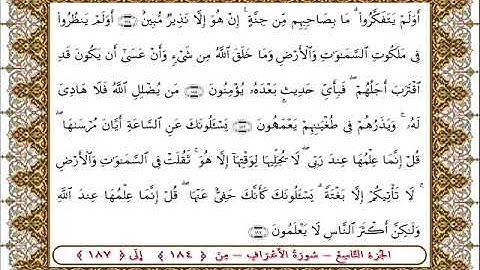 أَوَلَمْ يَتَفَكَّرُوا۟ ۗ مَا بِصَاحِبِهِم مِّن جِنَّةٍ ۚ إِنْ هُوَ إِلَّا نَذِيرٌ مُّبِينٌ ﴿١٨٤﴾ أَوَلَمْ يَنظُرُوا۟
فِى مَلَكُوتِ ٱلسَّمَـٰوَٰتِ وَٱلْأَرْضِ وَمَا خَلَقَ ٱللَّهُ مِن شَىْءٍ وَأَنْ عَسَىٰٓ أَن يَكُونَ قَدِ
ٱقْتَرَبَ أَجَلُهُمْ ۖ فَبِأَىِّ حَدِيثٍۭ بَعْدَهُۥ يُؤْمِنُونَ ﴿١٨٥﴾ مَن يُضْلِلِ ٱللَّهُ فَلَا هَادِىَ
لَهُۥ ۚ وَيَذَرُهُمْ فِى طُغْيَـٰنِهِمْ يَعْمَهُونَ ﴿١٨٦﴾ يَسْـَٔلُونَكَ عَنِ ٱلسَّاعَةِ أَيَّانَ مُرْسَىٰهَا ۖ
قُلْ إِنَّمَا عِلْمُهَا عِندَ رَبِّى ۖ لَا يُجَلِّيهَا لِوَقْتِهَآ إِلَّا هُوَ ۚ ثَقُلَتْ فِى ٱلسَّمَـٰوَٰتِ وَٱلْأَرْضِ
ۚ لَا تَأْتِيكُمْ إِلَّا بَغْتَةً ۗ يَسْـَٔلُونَكَ كَأَنَّكَ حَفِىٌّ عَنْهَا ۖ قُلْ إِنَّمَا عِلْمُهَا عِندَ ٱللَّهِ
وَلَـٰكِنَّ أَكْثَرَ ٱلنَّاسِ لَا يَعْلَمُونَ ﴿١٨٧﴾
الجزء التاسع - سورة الأعراف - من ﴿ ١٨٤ ﴾ إلى ﴿ ١٨٧ ﴾